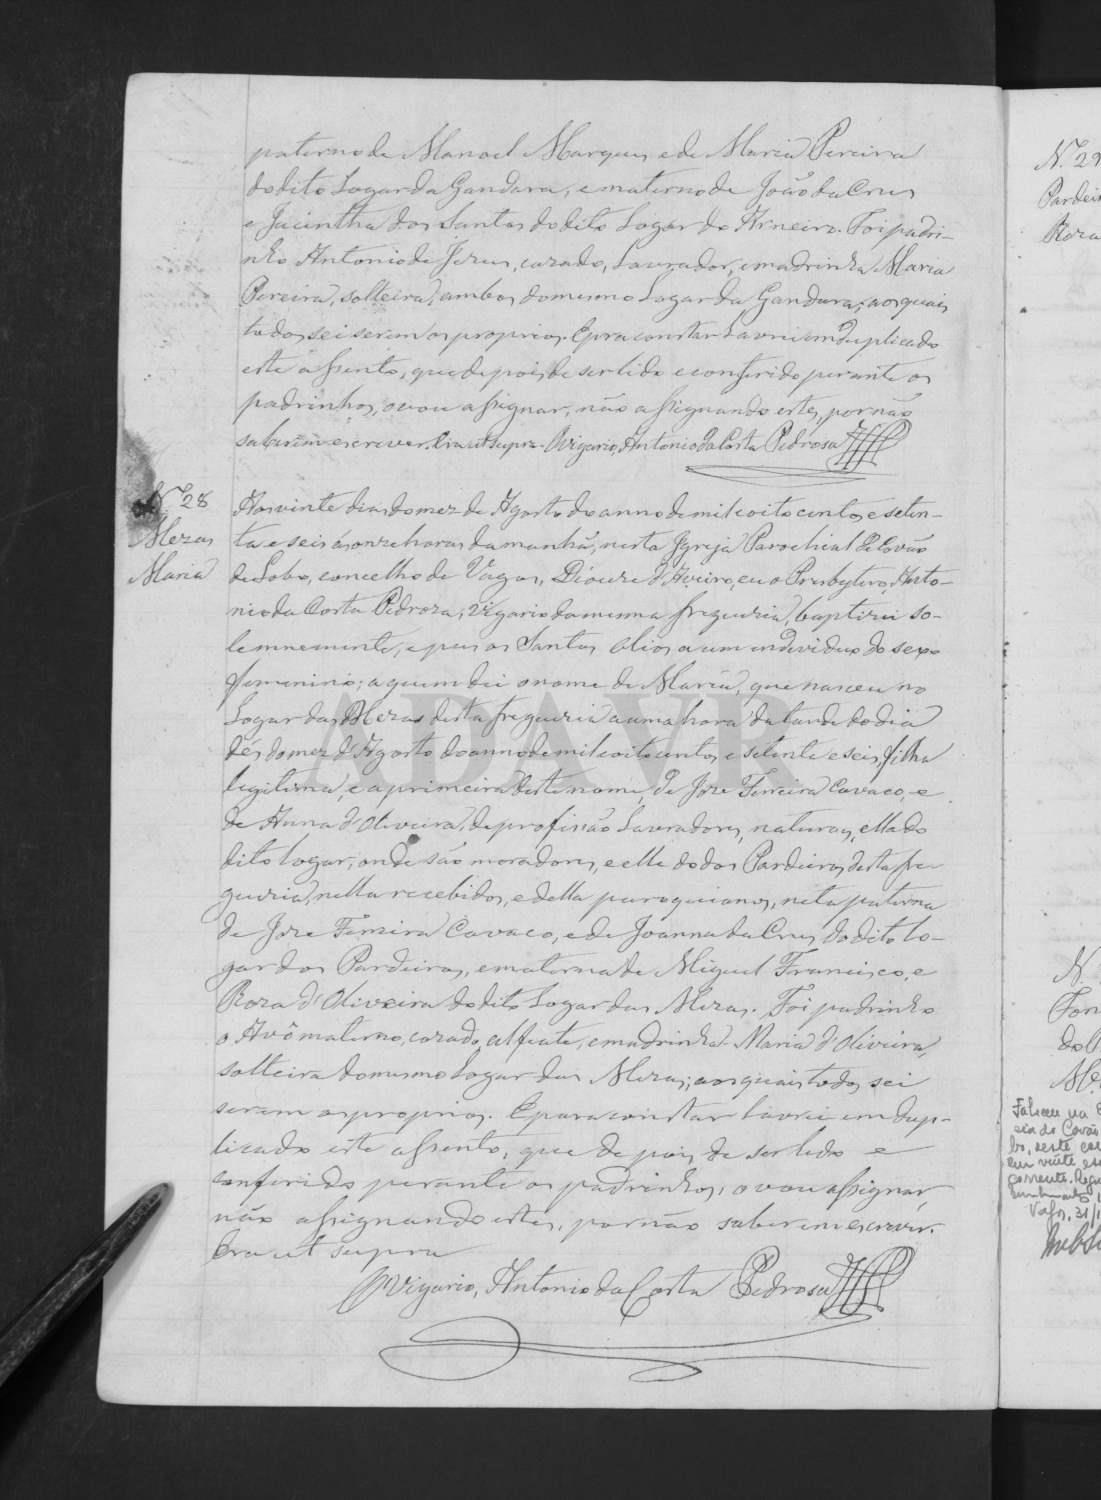 paterno de Manoel Marques e de Maria Pereira
do dito Logar da Gandara, e materno de João da Crus
e Jacintha dos Santos do dito Logar do Arneiro. Foi padri-
nho Antonio de Jesus, cazado, Lavrador, e madrinha Maria
Pereira, solteira, ambos do mesmo Logar da Gandara; aos quais
todos sei serem os proprios. E pra constar Lavrei em duplicado
este assento, que depois de ser lido e conferido perante os
padrinhos, o vou assignar, não assignando estes, por não
saberem escrever. Era ut supra. O Vigario, Antonio da Costa Pedrosa
N.º 28
Mezas
Maria
Aos vinte dias do mez de Agosto do anno de mil e oito centos e seten-
ta e seis ás onze horas da manhã, nesta Igreja Parochial de Covão
de Lobo, concelho de Vagos, Diocese d'Aveiro, eu o Presbytero, Anto-
nio da Costa Pedroza, Vigario da mesma freguezia, baptizei so-
lemnemente, e puz os Santos Olios a um individuo do sexo
femenino; a quem dei o nome de Maria, que nasceu no
Logar das Mezas desta freguezia a uma hora da tarde do dia
dés do mez d'Agosto do anno de mil e oito centos e setenta e seis, filha
legitima, e a primeira deste nome, de Joze Ferreira Cavaco, e
de Anna d'Oliveira, de profissão Lavradores, naturaes, ella do
dito logar, onde são moradores, e elle do dos Pardeiros desta fre
guezia, nella recebidos, e della paroquianos, neta paterna
de Joze Ferreira Cavaco, e de Joanna da Crus do dito lo-
gar dos Pardeiros, e materna de Miguel Francisco, e
Roza d'Oliveira do dito Logar das Mezas. Foi padrinho
o Avô materno, cazado, alfaate, e madrinha Maria d'Oliveira,
solteira do mesmo Logar das Mezas; aos quais todos sei
serem os proprios. E para constar lavrei em dup-
licado este assento, que depois de ser lido e
conferido perante os padrinhos, o vou assignar,
não assignando estes, por não saberem escrever.
Era ut supra
O Vigario, Antonio da Costa Pedrosa
ADAVR
N. 29
Pardeir
Roza
N.
do
Faleceu na
em vinte
Vagos, 31/1